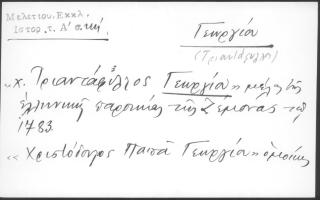 Μελετίου. Εκκλ.
Ιστορ. τ. Α' σ.
Γεωργίου
(Τριαντάφυλλ)
«χ. Τριαντάφυλλος Γεωργίου» μέλος της
ἑλληνικῆς παροικίας τῆς Ζέμονας τῷ
1783.
«Χριστόδουλος Παπᾶ Γεωργίου» ὁμοίως